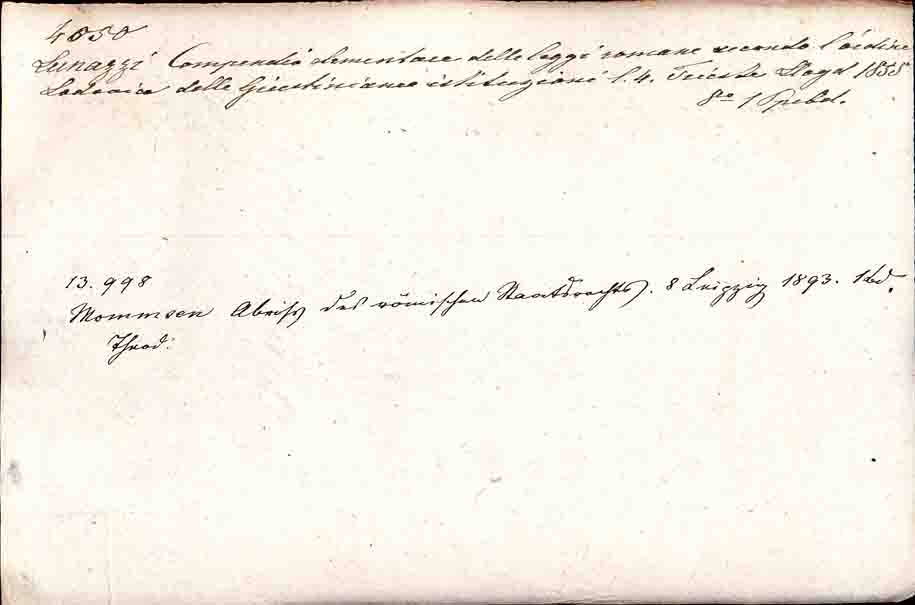 4050
Lunazzi Compendio elementare delle leggi romane secondo l'ordine
Lodovico delle Giustinianee istituzioni l. 4. Trieste Lloyd 1858
8º 1 Ppbd.
13.998
Mommsen Abriss des römischen Staatsrechts. 8 Leipzig 1893. 1 Bd.
Theod: